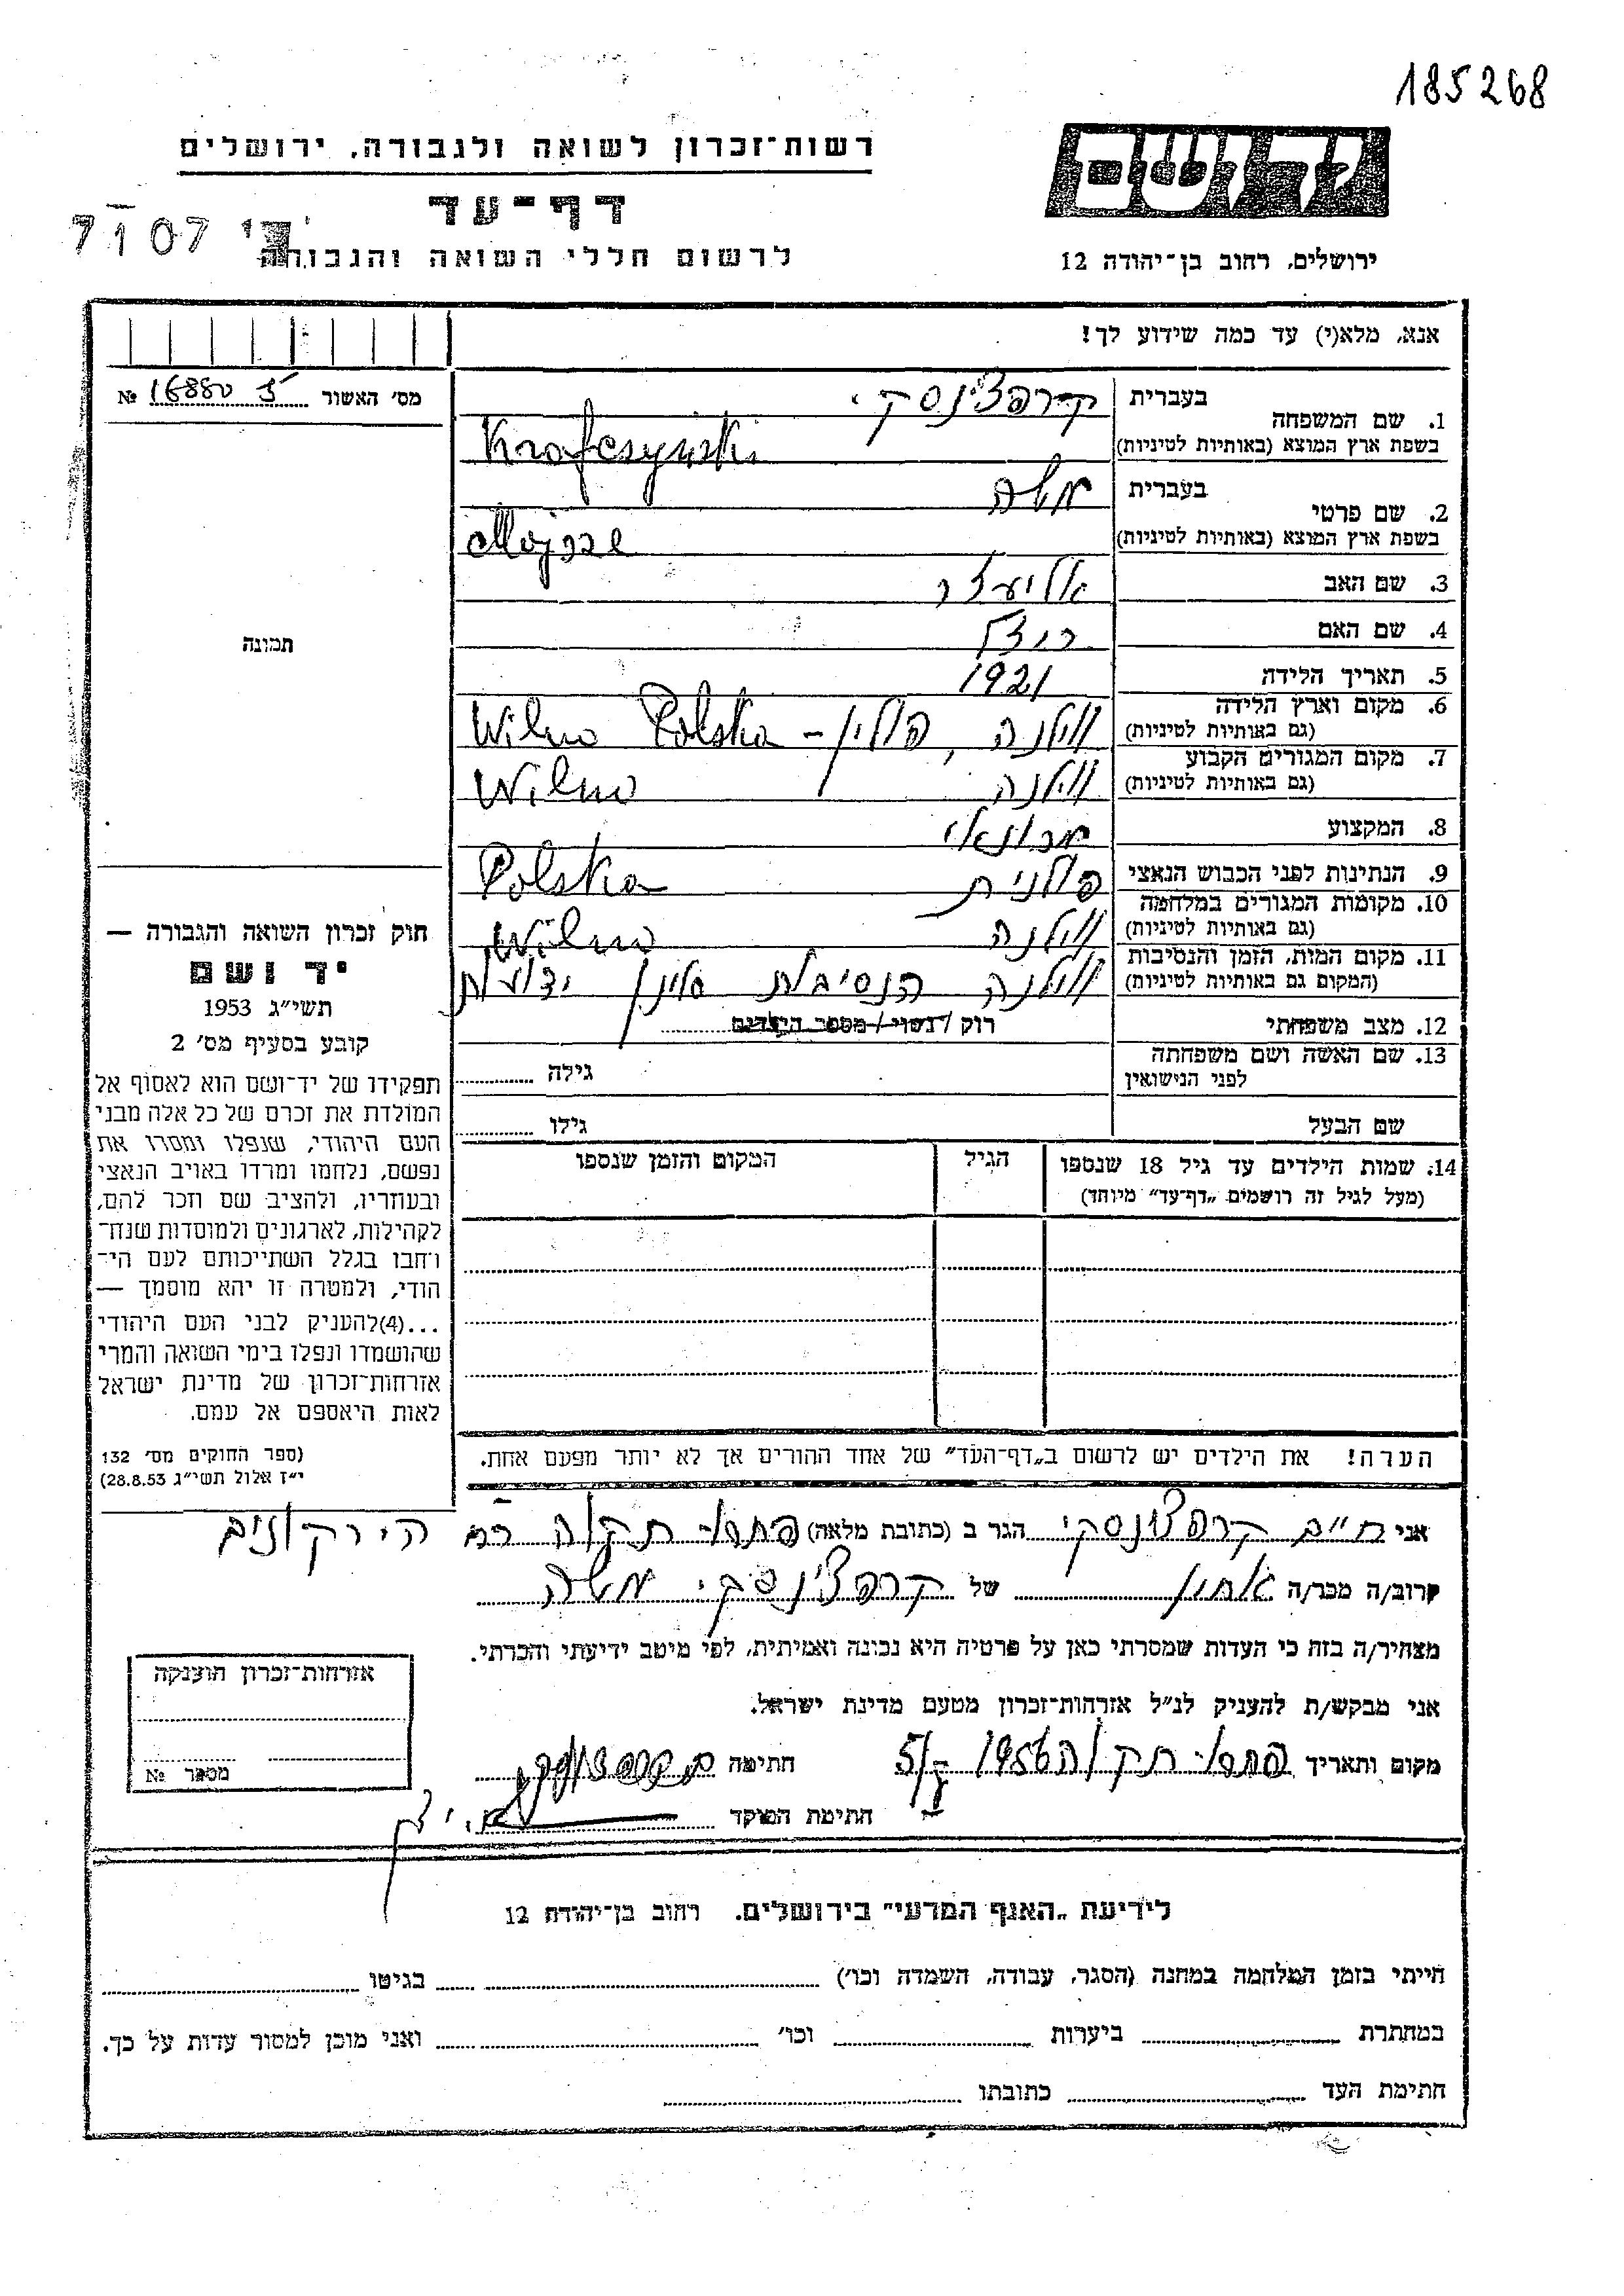 185268
יד ושם
רשות־זכרון לשואה ולגבורה, ירושלים
דף־עד
7107
ירושלים, רחוב בן־יהודה 12
לרשום חללי השואה והגבורה
אנא, מלא(י) עד כמה שידוע לך!
מס׳ האשור № 16880
1. שם המשפחה בעברית קרפצ׳ינסקי
בשפת ארץ המוצא (באותיות לטיניות) Krafczynski
2. שם פרטי בעברית משה
בשפת ארץ המוצא (באותיות לטיניות) Mojsze
3. שם האב אליעזר
4. שם האם
5. תאריך הלידה 1921
6. מקום וארץ הלידה
(גם באותיות לטיניות) ווילנה, פולין – Wilno Polska
7. מקום המגורים הקבוע
(גם באותיות לטיניות) ווילנה Wilno
8. המקצוע מכונאי
9. הנתינות לפני הכבוש הנאצי פולנית Polska
10. מקומות המגורים במלחמה
(גם באותיות לטיניות) ווילנה Wilno
11. מקום המות, הזמן והנסיבות
(המקום גם באותיות לטיניות) ווילנה הנסיבות אינן ידועות
12. מצב משפחתי רוק / נשוי / מספר הילדים
13. שם האשה ושם משפחתה
לפני הנישואין גילה
שם הבעל גילו
14. שמות הילדים עד גיל 18 שנספו הגיל המקום והזמן שנספו
(מעל לגיל זה רושמים „דף־עד״ מיוחד)
תמונה
חוק זכרון השואה והגבורה —
יד ושם
תשי״ג 1953
קובע בסעיף מס׳ 2
תפקידו של יד־ושם הוא לאסוף אל
המולדת את זכרם של כל אלה מבני
העם היהודי, שנפלו ומסרו את
נפשם, נלחמו ומרדו באויב הנאצי
ובעוזריו, ולהציב שם וזכר להם,
לקהילות, לארגונים ולמוסדות שנח־
רבו בגלל השתייכותם לעם הי־
הודי, ולמטרה זו יהא מוסמך —
...(4)להעניק לבני העם היהודי
שהושמדו ונפלו בימי השואה והמרי
אזרחות־זכרון של מדינת ישראל
לאות היאספם אל עמם.
(ספר החוקים מס׳ 132
י״ז אלול תשי״ג 28.8.53)
הערה! את הילדים יש לרשום ב„דף־העד״ של אחד ההורים אך לא יותר מפעם אחת.
אני חיים קרפצ׳ינסקי הגר ב (כתובת מלאה) פתח־תקוה רח הירקונים
קרוב/ה מכר/ה של קרפצ׳ינסקי משה
מצהיר/ה בזה כי העדות שמסרתי כאן על פרטיה היא נכונה ואמיתית, לפי מיטב ידיעתי והכרתי.
אני מבקש/ת להעניק לנ״ל אזרחות־זכרון מטעם מדינת ישראל.
מקום ותאריך פתח־תקוה 1956 חתימה
חתימת הפוקד
אזרחות־זכרון הוענקה
מספר №
לידיעת „האגף המדעי״ בירושלים, רחוב בן־יהודה 12
הייתי בזמן המלחמה במחנה (הסגר, עבודה, השמדה וכו׳) בגיטו
במחתרת ביערות וכו׳ ואני מוכן למסור עדות על כך.
חתימת העד כתובתו